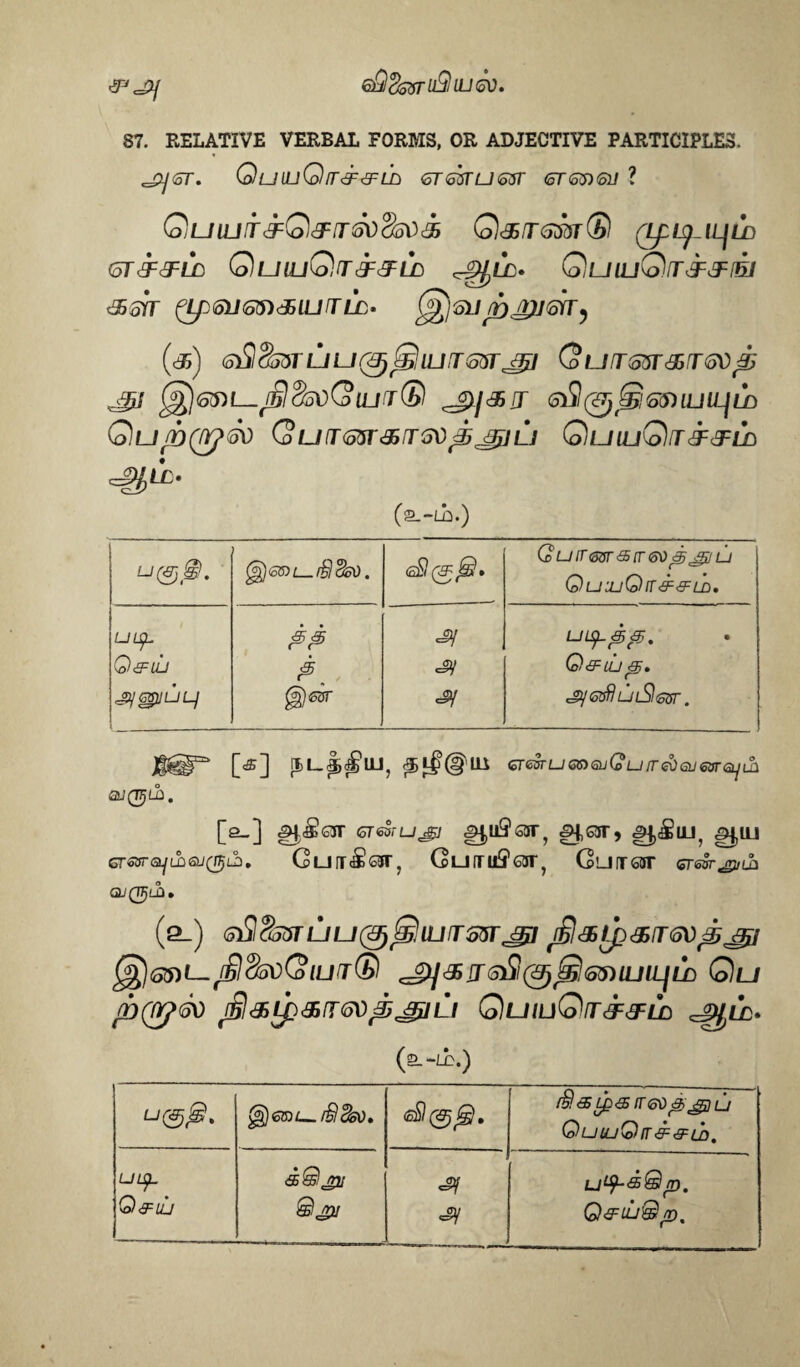 ௮௪ வினையியல்.
87. RELATIVE VERBAL FORMS, OR ADJECTIVE PARTICIPLES.
அஎ. பெயரெச்சம் என்பன எவை?
பெயர்ச்சொல்லைக் கொண்டு முடியும்
எச்சம் பெயரெச்சம் ஆம். பெயரெச்சங்
கள் மூவகையாம். இவற்றுள்,
(க) வினைப்பகுதியானது போன்காலத்
து இடைநிலையோடு அகர விகுதியையும்
பெற்றால் போன்காலத்துப் பெயரெச்சம்
ஆம்.
(உ-ம்.)
பகுதி. இடைநிலை. விகுதி. போன்காலத்துப் பெயரெச்சம்.
படி த்த் அ படித்த.
செய் த் அ செய்த.
அனுப்பு இன் அ அனிப்பின.
☞ [க] இடத்திய, தாழ்ஞிய என்பனவேபோல்வனவும்
வரும்.
[உ] ஆகின என்பது ஆயின, ஆன, ஆகிய, ஆய
எனவும்வரும். போகின, போயின, போன என்றும்
வரும்.
(உ) வினைப்பகுதியானது நிகழ்காலத்து
இடைநிலையோடு அகரவிகுதியையும் பெ
ற்றால் நிகழ்காலத்துப் பெயரெச்சம் ஆம்.
(உ-ம்.)
பகுதி. இடைநிலை. விகுதி. நிகழ்காலத்துப் பெயரெச்சம்.
படி க்கிறு அ படிக்கிற.
செய் கிறு அ செய்கிற.